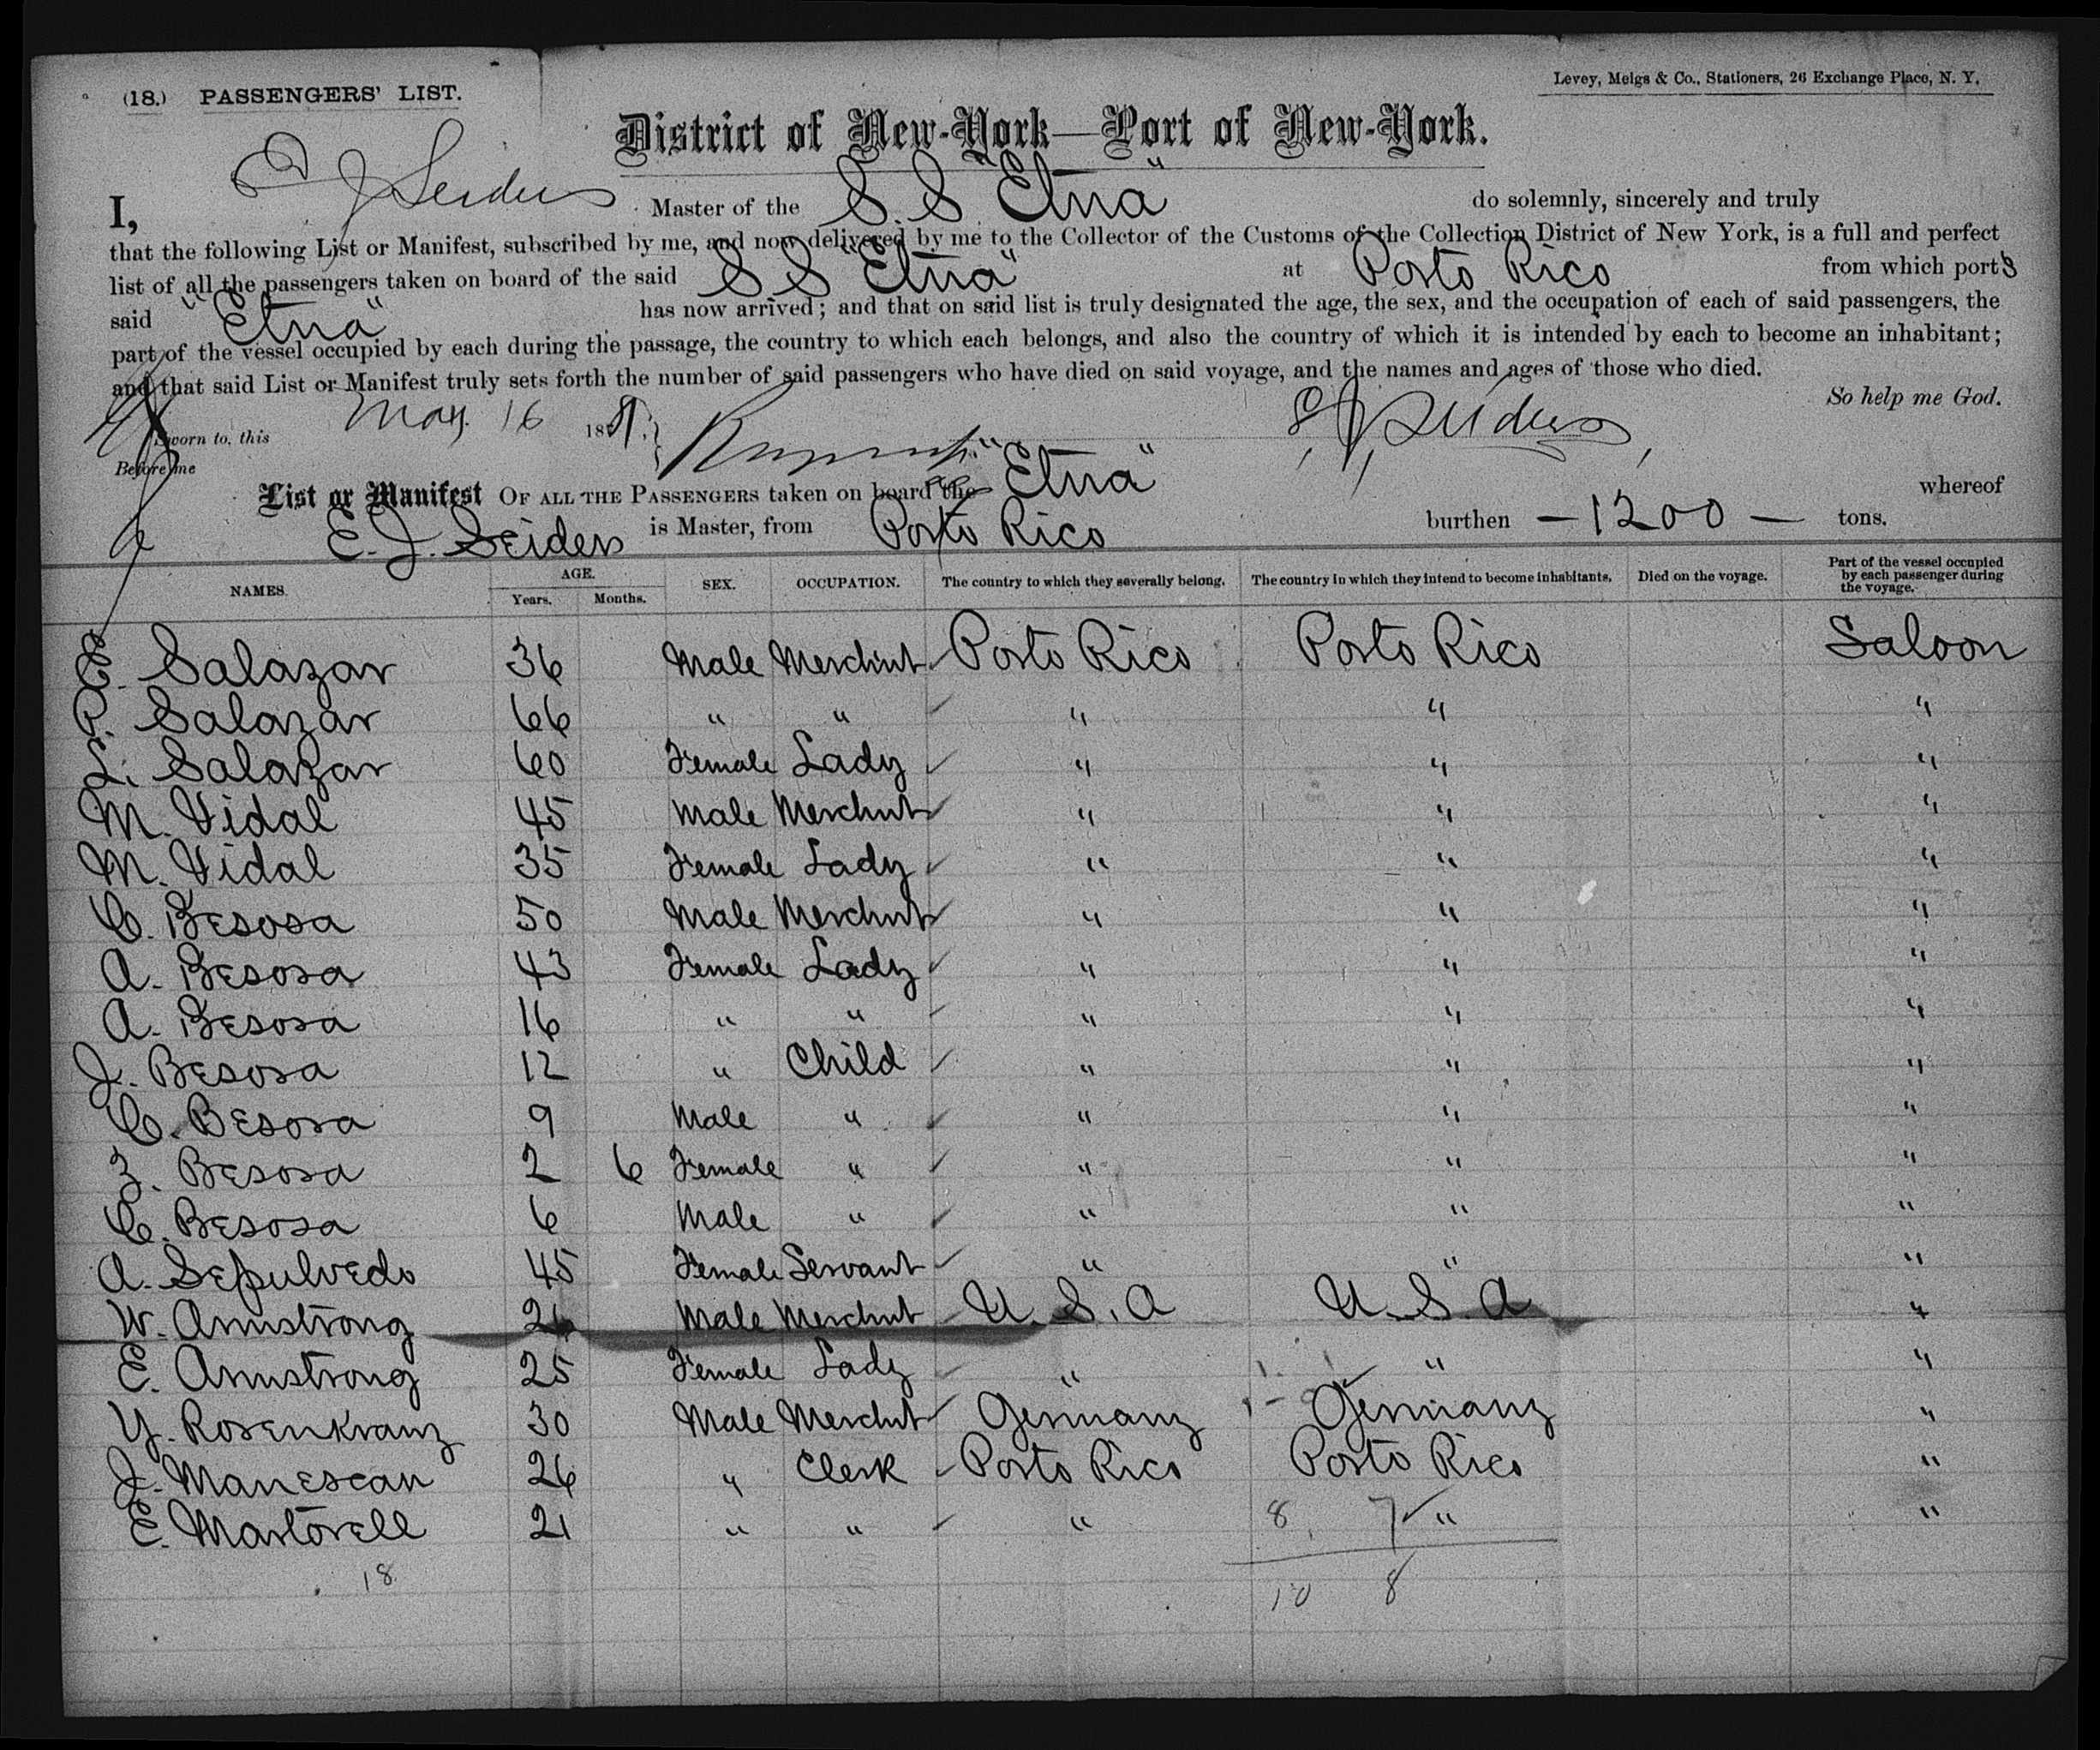 (18.) PASSENGERS' LIST.
Levey, Meigs & Co., Stationers, 26 Exchange Place, N. Y.
District of New-York—Port of New-York.
I, E J Seiders Master of the S. S. "Etna" do solemnly, sincerely and truly
that the following List or Manifest, subscribed by me, and now delivered by me to the Collector of the Customs of the Collection District of New York, is a full and perfect
list of all the passengers taken on board of the said S S "Etna" at Porto Rico from which port s
said "Etna" has now arrived; and that on said list is truly designated the age, the sex, and the occupation of each of said passengers, the
part of the vessel occupied by each during the passage, the country to which each belongs, and also the country of which it is intended by each to become an inhabitant;
and that said List or Manifest truly sets forth the number of said passengers who have died on said voyage, and the names and ages of those who died.
So help me God.
Sworn to, this May 16 18 E J Seiders
Before me
List or Manifest OF ALL THE PASSENGERS taken on board the "Etna" whereof
E. J. Seiders is Master, from Porto Rico burthen — 1200 — tons.
NAMES. AGE. Years. Months. SEX. OCCUPATION. The country to which they severally belong. The country in which they intend to become inhabitants. Died on the voyage. Part of the vessel occupied by each passenger during the voyage.
E. Salazar 36 Male Merchnt Porto Rico Porto Rico Saloon
R. Salazar 66 " " " " "
L. Salazar 60 Female Lady " " "
M. Vidal 45 Male Merchnt " " "
M. Vidal 35 Female Lady " " "
C. Besosa 50 Male Merchnt " " "
A. Besosa 43 Female Lady " " "
A. Besosa 16 " " " " "
J. Besosa 12 " Child " " "
C. Besosa 9 Male " " " "
Z. Besosa 2 6 Female " " " "
C. Besosa 6 Male " " " "
A. Sepulvedo 45 Female Servant " " "
W. Armstrong 26 Male Merchnt U. S. A U. S. A "
E. Armstrong 25 Female Lady " " "
Y. Rosenkranz 30 Male Merchnt Germany Germany "
J. Manescau 26 " Clerk Porto Rico Porto Rico "
E. Martorell 21 " " " 8 7 " "
18 10 8